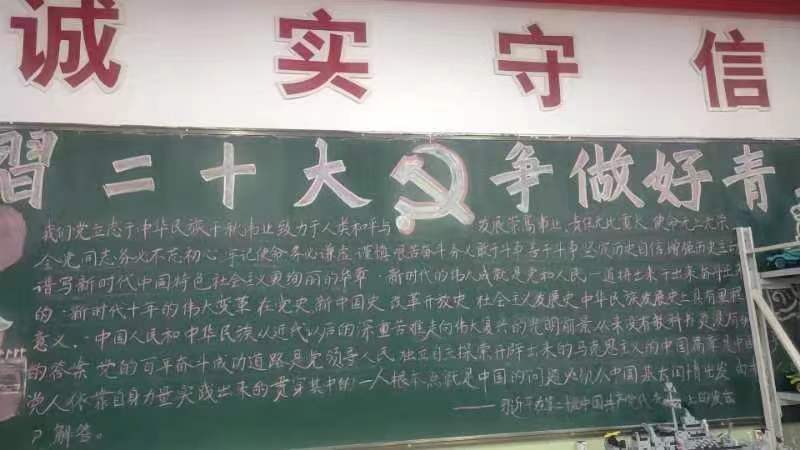 诚实守信
習二十大 争做好青
我们党立志于中华民族千秋伟业致力于人类和平与发展崇高事业,责任无比重大,使命无上光荣
全党同志务必不忘初心、牢记使命务必谦虚谨慎、艰苦奋斗务必敢于斗争善于斗争坚定历史自信增强历史主动
谱写新时代中国特色社会主义更绚丽的华章·新时代的伟大成就是党和人民一道拼出来干出来奋斗出来
的·新时代十年的伟大变革在党史新中国史改革开放史社会主义发展史中华民族发展史上具有里程
意义·中国人民和中华民族从近代以后的深重苦难走向伟大复兴的光明前景从来没有教科书更没有
的答案党的百年奋斗成功道路是党领导人民独立自主探索开辟出来的马克思主义的中国篇章是中国
党人依靠自身力量实践出来的贯穿其中的一个根本点就是中国的问题必须从中国基本国情出发
——习近平在第二十
解答。